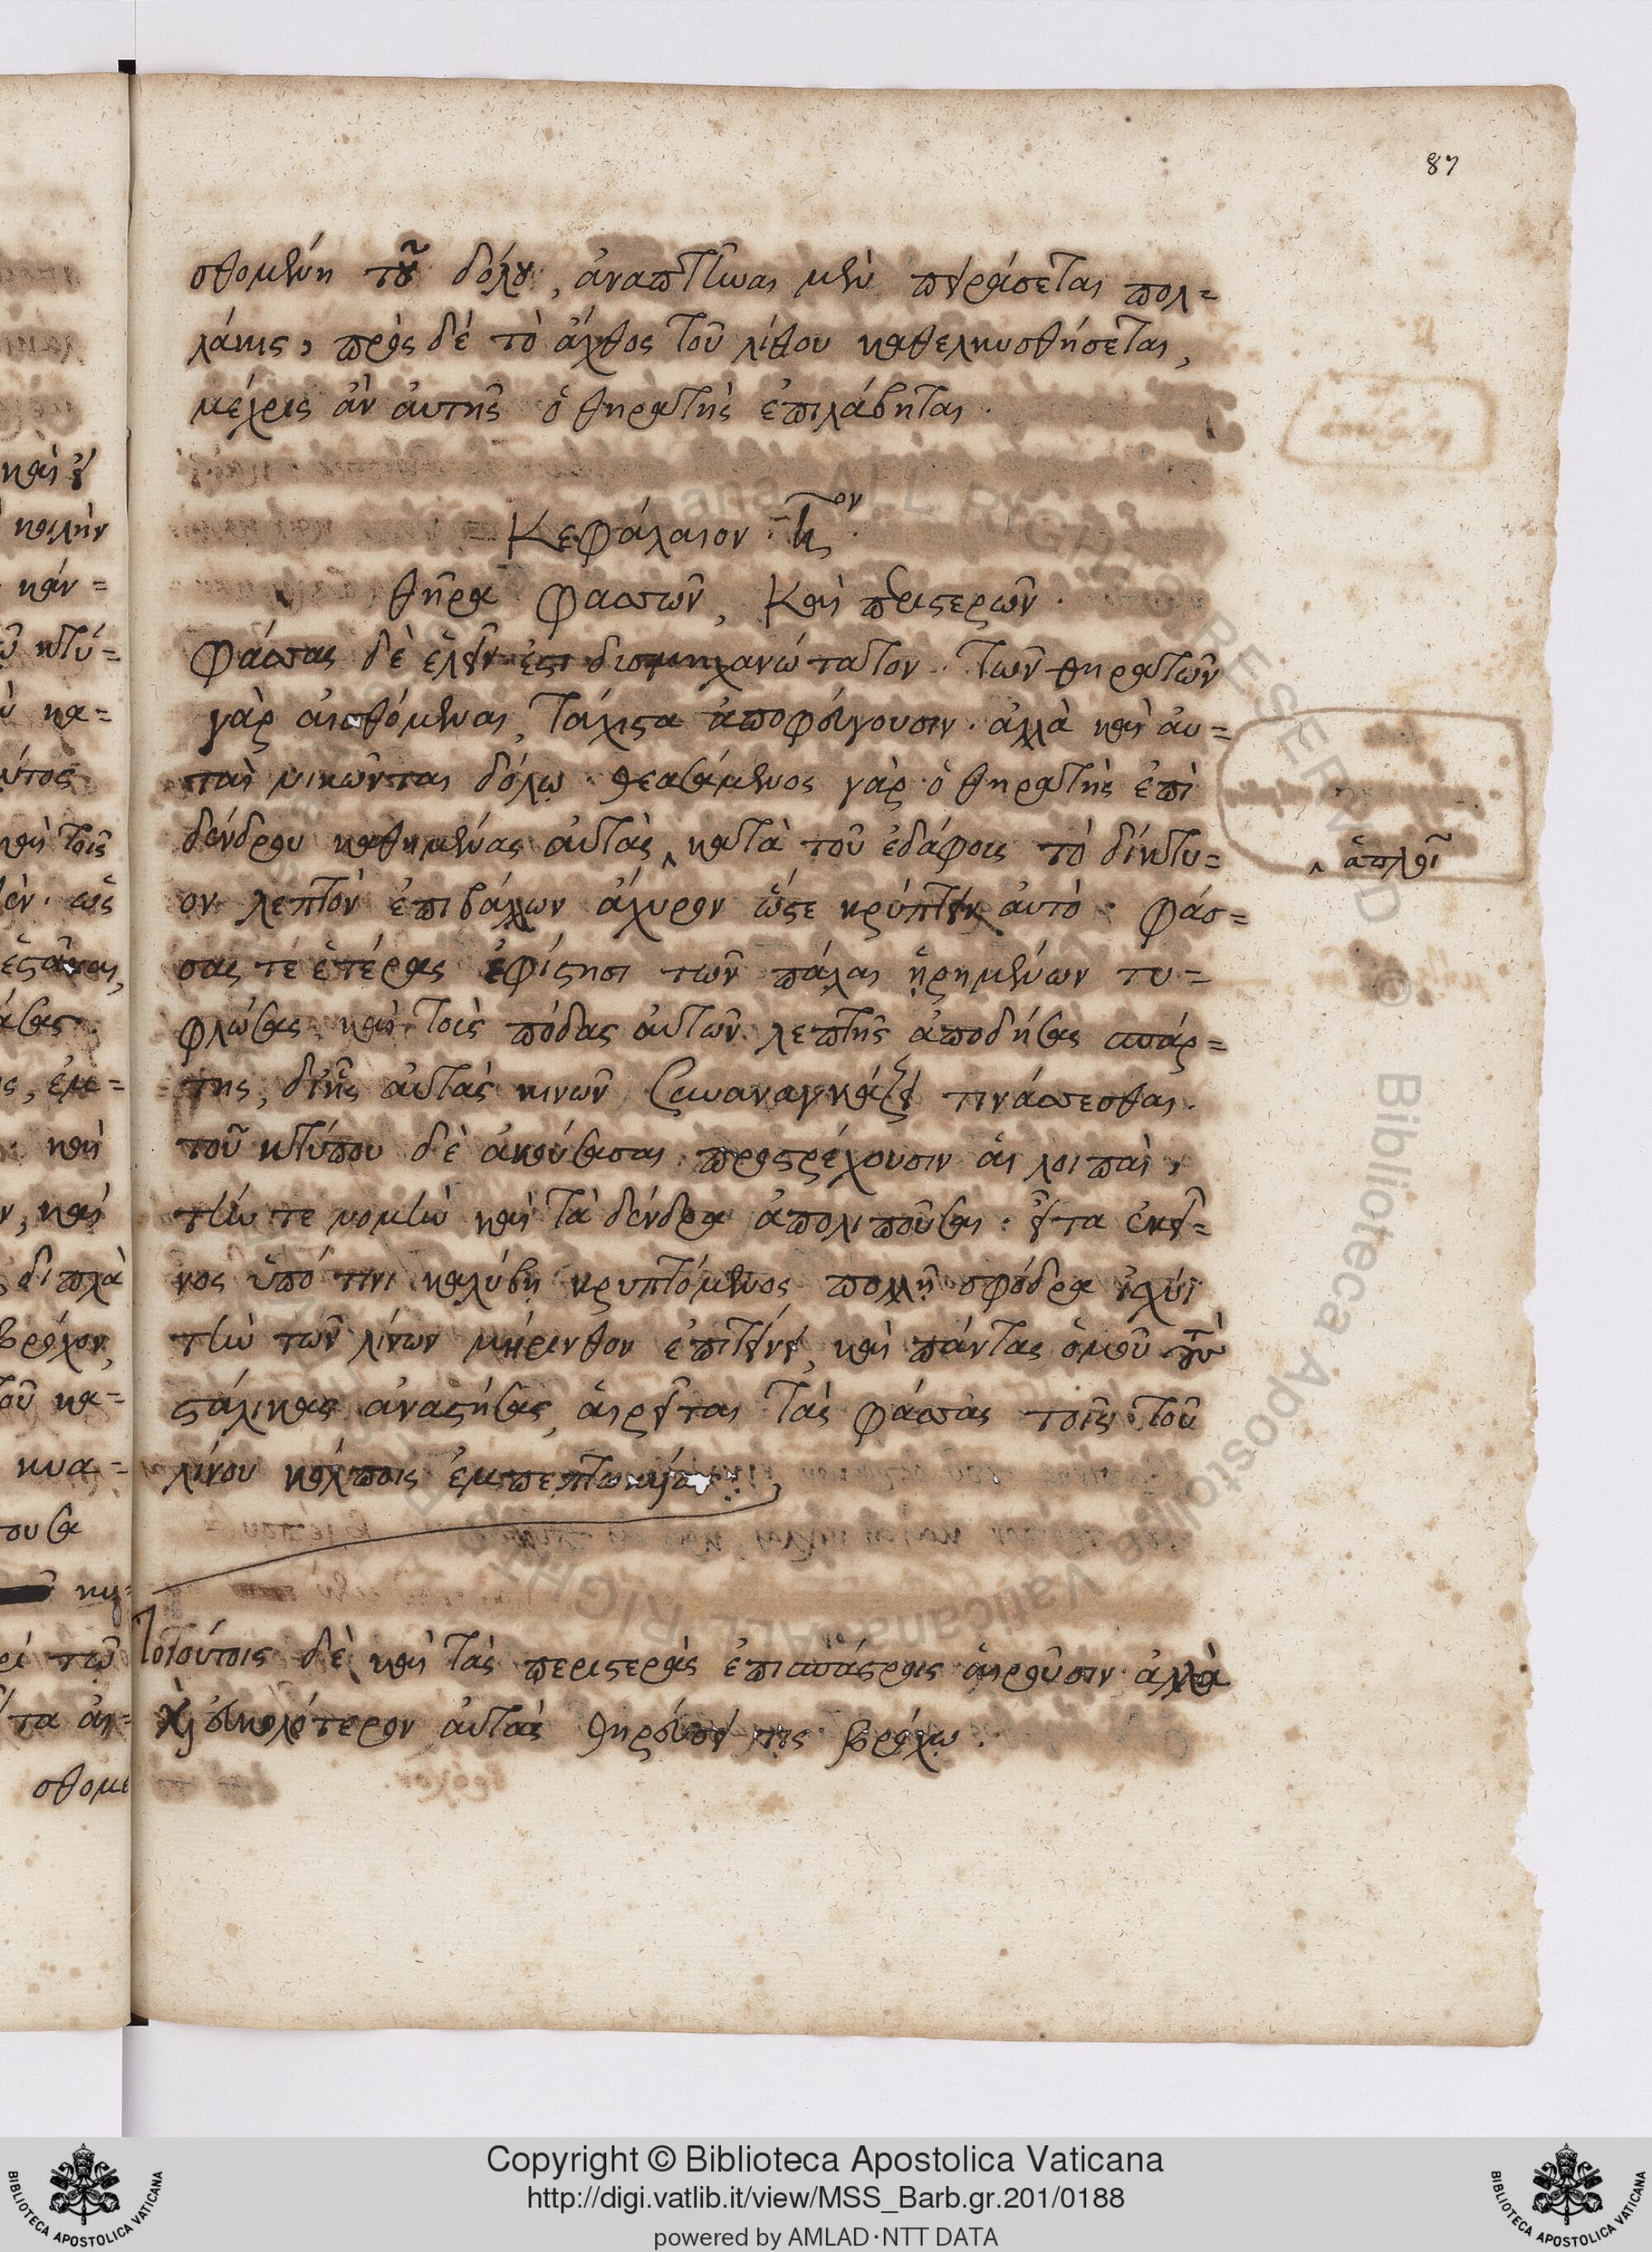 87
σθομένη τοῦ δόλου, ἀναπτῆναι μὲν πειράσεται πολ=
λάκις, πρὸς δέ τὸ ἄχθος τοῦ λίθου καθελκυσθήσεται,
μέχρις ἂν ἀυτῆς ὁ θηρατὴς ἐπιλάβηται.
Κεφάλαιον κ̅ον.
θῆρα φασσῶν, καὶ περιστερῶν.
Φάσσας δὲ ἑλεῖν ἐστι δυσμηχανώτατον. τῶν θηρατῶν
γὰρ ἀισθόμεναι, τάχιστα ἀποφεύγουσιν. ἀλλὰ καὶ ἀυ=
ταὶ νικῶνται δόλῳ. θεασάμενος γὰρ ὁ θηρατὴς ἐπὶ
δένδρου καθημένας αὐτὰς ‸ κατὰ τοῦ ἐδάφοις τὸ δίκτυ=
‸ ἁπλοῖ
ον λεπτὸν ἐπιβάλλων ἄχυρον ὥστε κρύπτειν αὐτό. φάσ=
σας τέ ἑτέρας ἐφίστησι τῶν πάλαι ᾑρημένων τυ=
φλώσας, καὶ τοὶς πόδας αὐτῶν λεπτῆς ἀποδήσας σπάρ=
της, δι' ἧς αὐτὰς κινῶν συναναγκάζει τινάσσεσθαι.
τοῦ κτύπου δὲ ἀκούσασαι προστρέχουσιν ἁι λοιπαὶ,
τήν τε νομὴν καὶ τὰ δένδρα ἀπολιποῦσαι. εἶτα ἐκεῖ=
νος ὑπό τινι καλύβῃ κρυπτόμενος πολλῇ σφόδρα ἰσχύϊ
τὴν τῶν λίνων μήρινθον ἐπιτείνει, καὶ πάντας ὁμοῦ τοὺς
στάλικας ἀναστήσας, ἁιρεῖται τὰς φάσσας τοῖς τοῦ
λίνου κόλποις ἐμπεπτωκυίας
Τοιούτοις δὲ καὶ τὰς περιστερὰς ἐπισπάστροις ἁιροῦσιν. ἀλλὰ
καὶ εὐκολώτερον αὐτὰς θηρεύσει τις βρόχῳ.
Copyright © Biblioteca Apostolica Vaticana
http://digi.vatlib.it/view/MSS_Barb.gr.201/0188
powered by AMLAD·NTT DATA
BIBLIOTECA APOSTOLICA VATICANA
BIBLIOTECA APOSTOLICA VATICANA